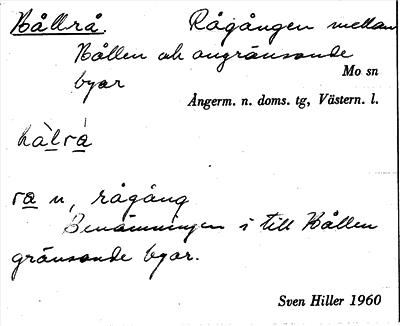 Hållrå. Rågången mellan
Hållen och angränsande
byar
Mo sn
Ångerm. n. doms. tg, Västern. l.
hàlrá
ra n, rågång
Benämningen i till Hållen
gränsande byar.
Sven Hiller 1960